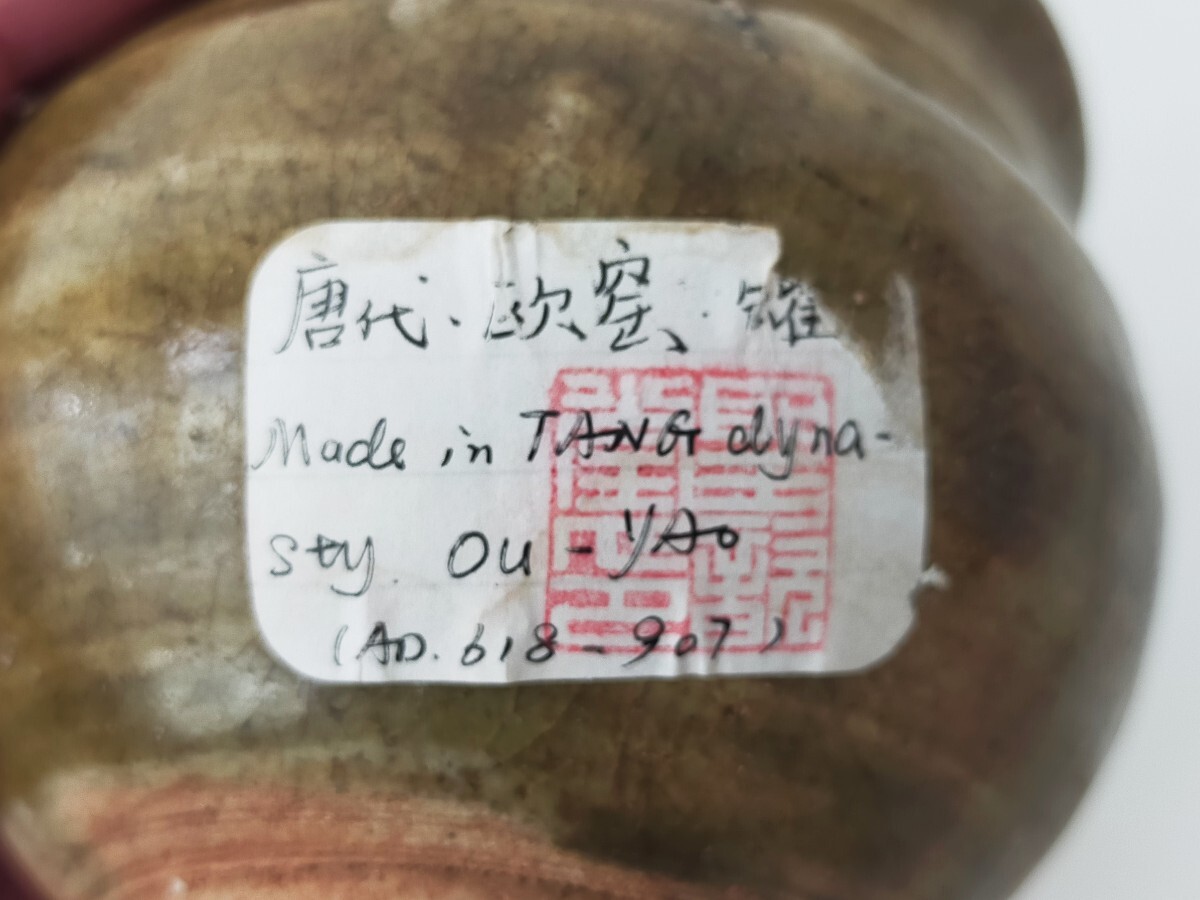 唐代·欧窑·罐
Made in TANG dyna-
sty. OU-YAO
(AD. 618-907)